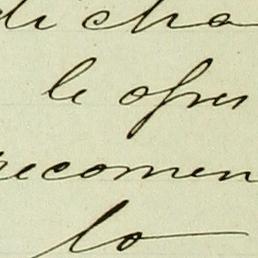 di cha
le ofre
recomen
lo